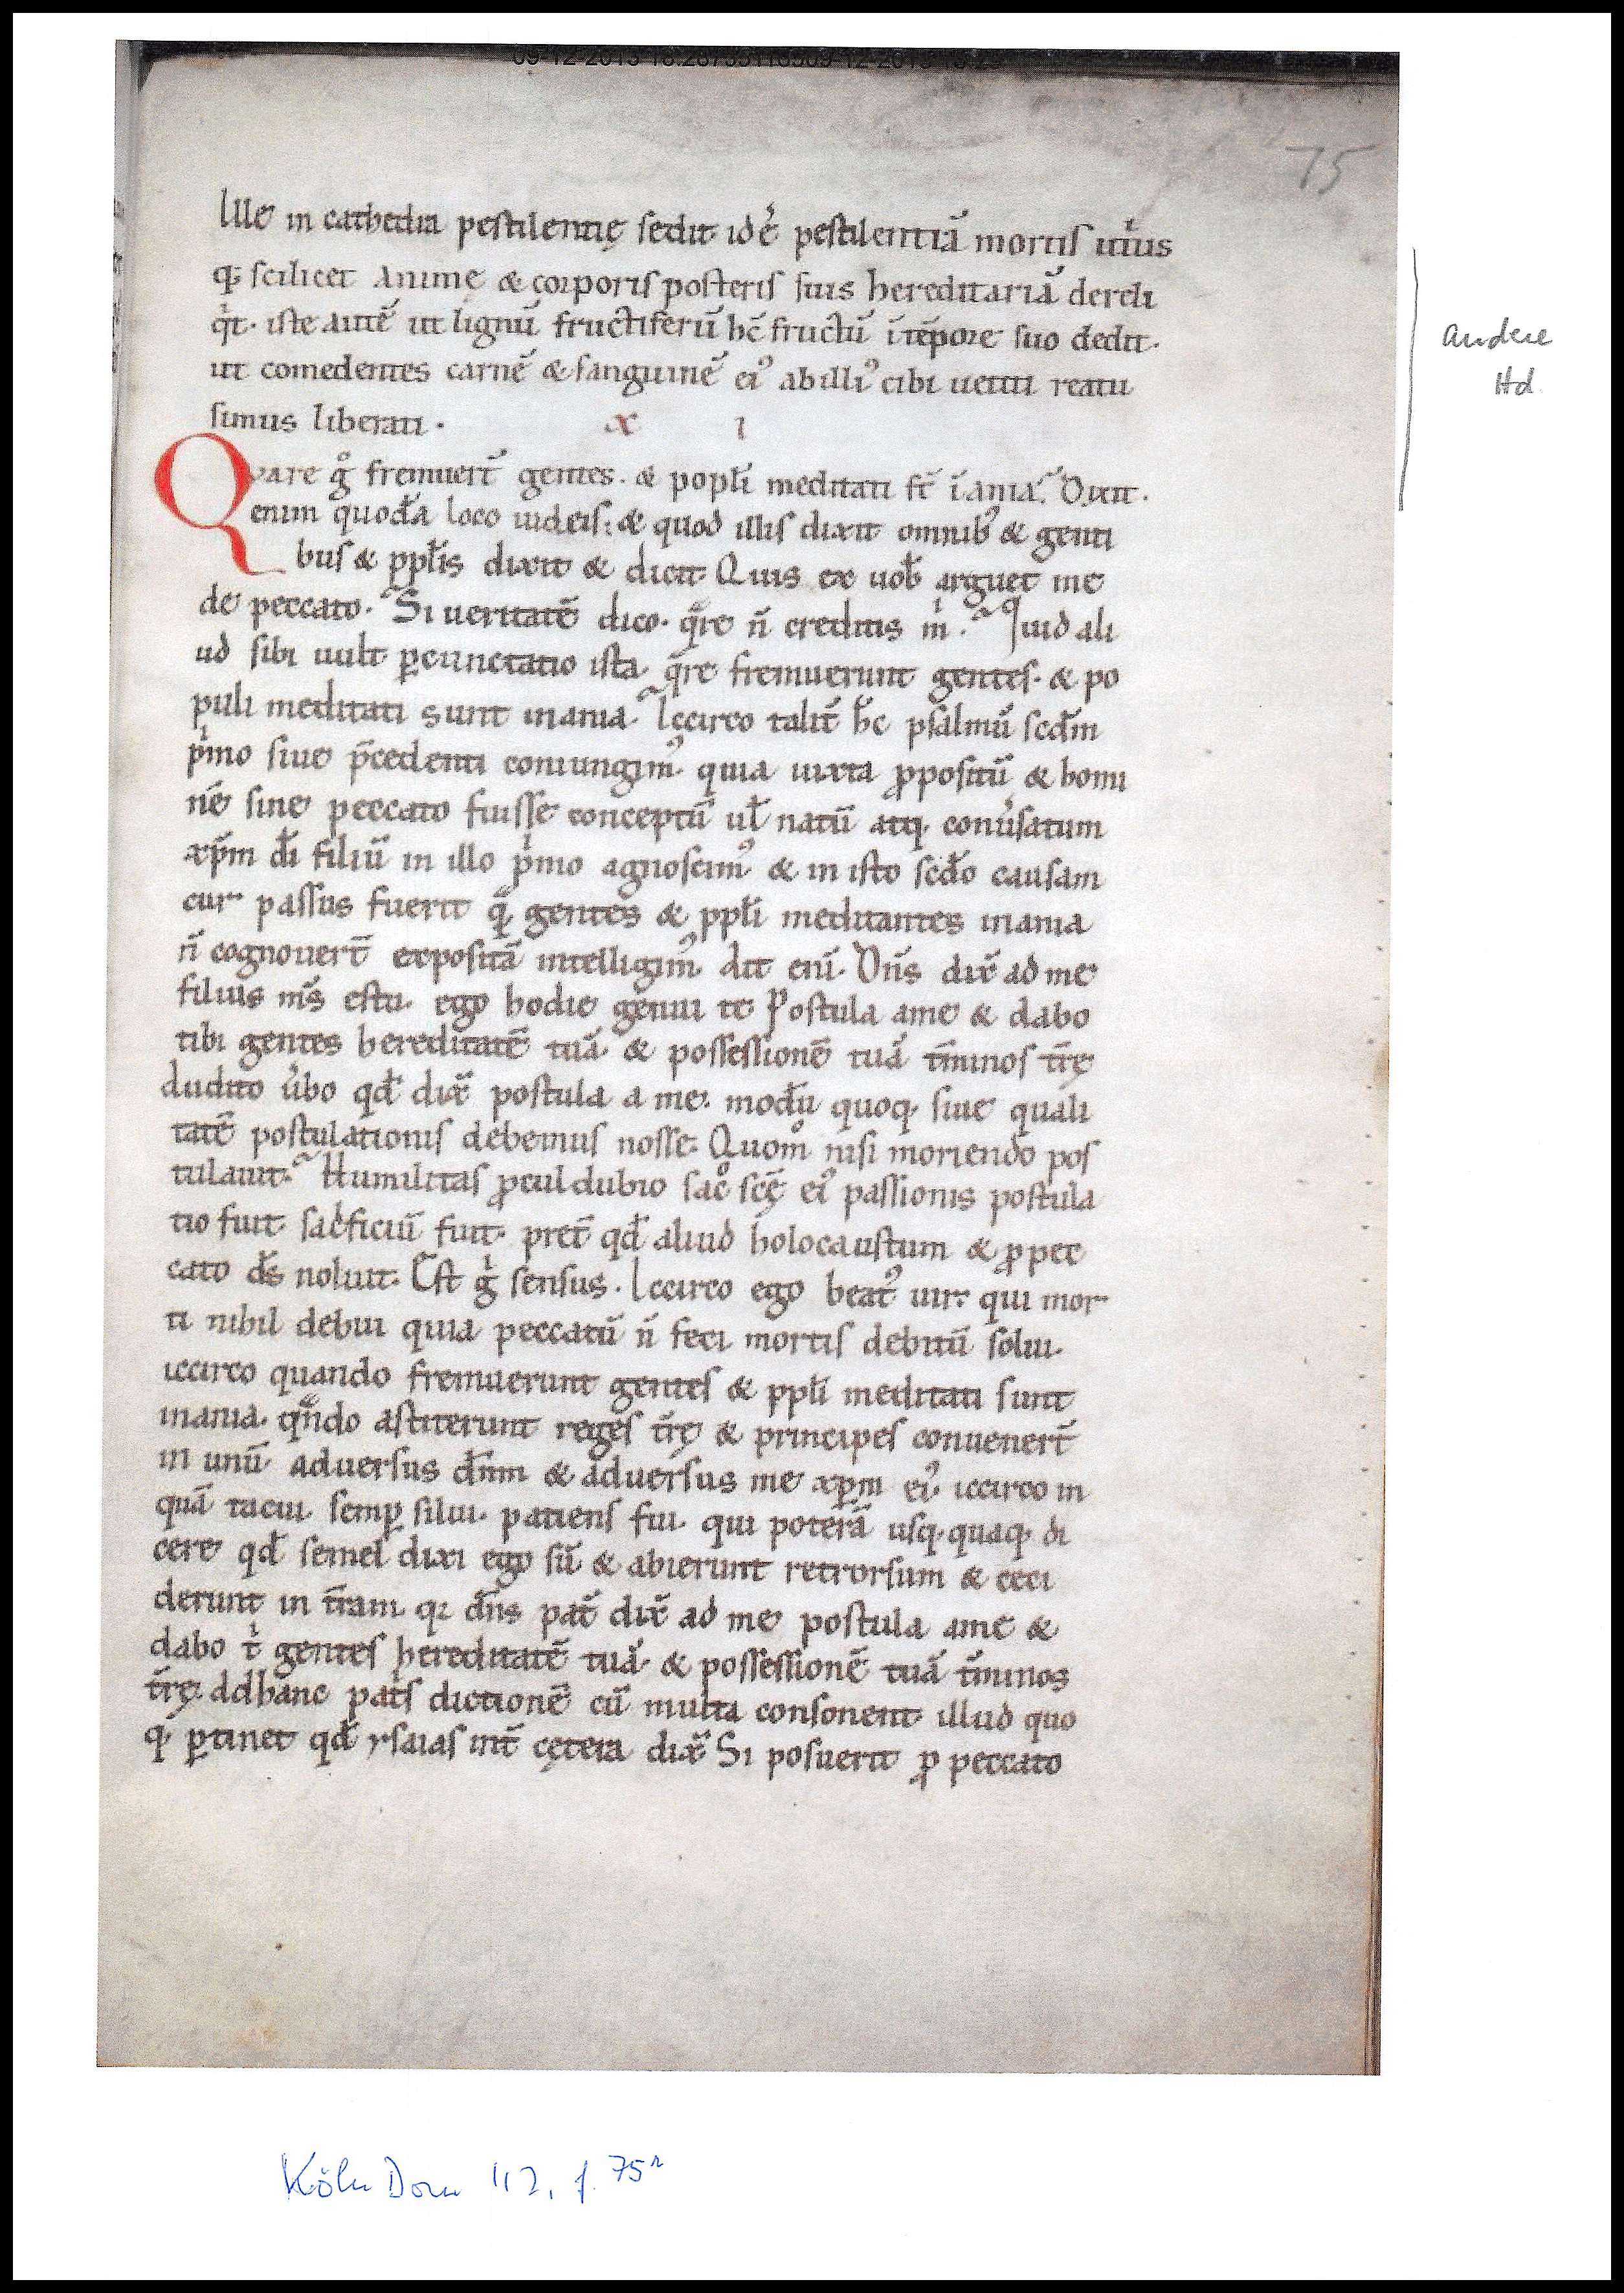 09-12-2013 18:28
75
Ille in cathedra pestilentię sedit id ē pestilentiā mortis utͥus
q; scilicet animę & corporis posteris suis hereditariā dereli
qͥt. iste autē ut lignū fructiferū hc̄ fructū ī tēpore suo dedit.
ut comedentes carnē & sanguinē eiꝰ ab illiꝰ cibi uetiti reatu
simus liberati.
x i
Qvare gͦ fremuert̄ gentes. & popl̄i meditati st̄ īania. Dixit.
enim quodā loco iudeis: & quod illis dixit omnibꝰ & genti
bus & ppl̄is dixit & dicit. Quis ex uob̄ arguet me
de peccato. Si ueritatē dico. qͣre n̄ creditis mͥ. Quid ali
ud sibi uult ꝑcunctatio ista. qͣre fremuerunt gentes. & po
puli meditati sunt inania. Iccirco talit̄ hc̄ psalmū scdm̄
pͥmo siue p̄cedenti coniungimꝰ. quia iuxta ꝓpositū & homi
nē sine peccato fuisse conceptū ul̄ natū atq; conūsatum
xp̄m dī filiū in illo pͥmo agnoscimꝰ & in isto scdo̅ causam
cur passus fuerit qͣ gentes & ppl̄i meditantes inania
n̄ cognouert̄ expositā intelligimꝰ. Ait enī. Dn̄s dix̄ ad me
filius ms̄ es tu. ego hodie genui te. Postula a me & dabo
tibi gentes hereditatē tuā. & possessionē tuā t̄minos t̄rę
Audito ūbo qd̄ dix̄ postula a me. modū quoq; siue quali
tatē postulationis debemus nosse. Quom̊ nisi moriendo pos
tulauit. Humilitas ꝓcul dubio sac̊ scę̄ eiꝰ passionis postula
tio fuit. sacͥficiū fuit. pret̄ qd̄ aliud holocaustum & ꝓ pec
cato ds̄ noluit. Est gͥ sensus. Iccirco ego beatꝰ uir. qui mor
ti nihil debui quia peccatū n̄ feci mortis debitū solui.
iccirco quando fremuerunt gentes & ppl̄i meditati sunt
inania. qn̄do astiterunt reges t̄rę & principes conuenert̄
in unū aduersus dn̄m & aduersus me xp̄m eiꝰ. iccirco in
quā tacui. semꝑ silui. patiens fui. qui poterā usq;quaq; di
cere qd̄ semel dixi ego sū & abierunt retrorsum & ceci
derunt in t̄ram. q; dn̄s pat̄ dix̄ ad me postula a me &
dabo tͥ gentes hereditatē tuā. & possessionē tuā t̄minos
t̄rę. Ad hanc patͥs dictionē cū multa consonent illud quo
q; ꝑtinet qd̄ ysaias int̄ cętera dix̄ Si posuerit ꝓ peccato
andere
Hd.
Köln Dom 112, f. 75r